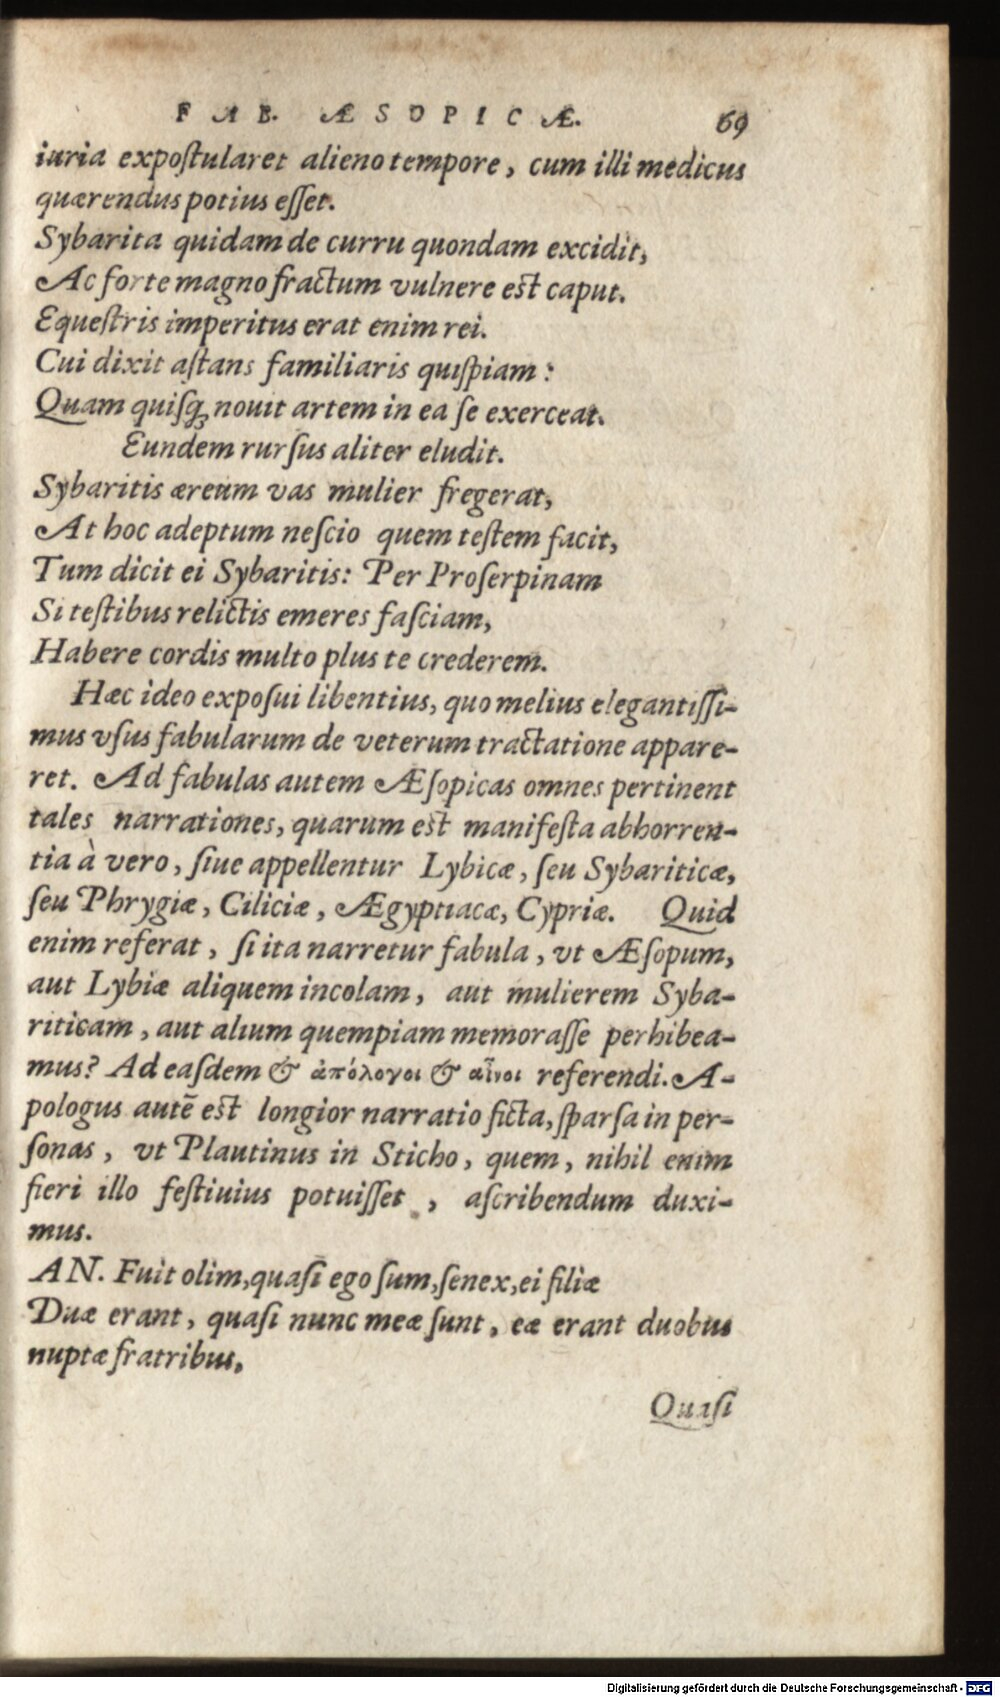 FAB. ÆSOPICÆ. 69
iuria expoſtularet alieno tempore, cum illi medicus
quærendus potius eſſet.
Sybarita quidam de curru quondam excidit,
Ac forte magno fractum vulnere est caput.
Equeſtris imperitus erat enim rei.
Cui dixit aſtans familiaris quiſpiam:
Quam quiſq; nouit artem in ea ſe exerceat.
Eundem rurſus aliter eludit.
Sybaritis æreum vas mulier fregerat,
At hoc adeptum neſcio quem teſtem facit,
Tum dicit ei Sybaritis: Per Proſerpinam
Si teſtibus relictis emeres faſciam,
Habere cordis multo plus te crederem.
Hæc ideo expoſui libentius, quo melius elegantiſſi-
mus vſus fabularum de veterum tractatione appare-
ret. Ad fabulas autem Æſopicas omnes pertinent
tales narrationes, quarum est manifeſta abhorren-
tia à vero, ſiue appellentur Lybicæ, ſeu Sybariticæ,
ſeu Phrygiæ, Ciliciæ, Ægyptiacæ, Cypriæ. Quid
enim referat, ſi ita narretur fabula, vt Æſopum,
aut Lybiæ aliquem incolam, aut mulierem Syba-
riticam, aut alium quempiam memoraſſe perhibea-
mus? Ad eaſdem & ἀπόλογοι & αἶνοι referendi. A-
pologus autē est longior narratio ficta, ſparſa in per-
ſonas, vt Plautinus in Sticho, quem, nihil enim
fieri illo feſtiuius potuiſſet, aſcribendum duxi-
mus.
AN. Fuit olim, quaſi ego ſum, ſenex, ei filiæ
Duæ erant, quaſi nunc meæ ſunt, eæ erant duobus
nuptæ fratribus,
Quaſi
Digitalisierung gefördert durch die Deutsche Forschungsgemeinschaft - DFG